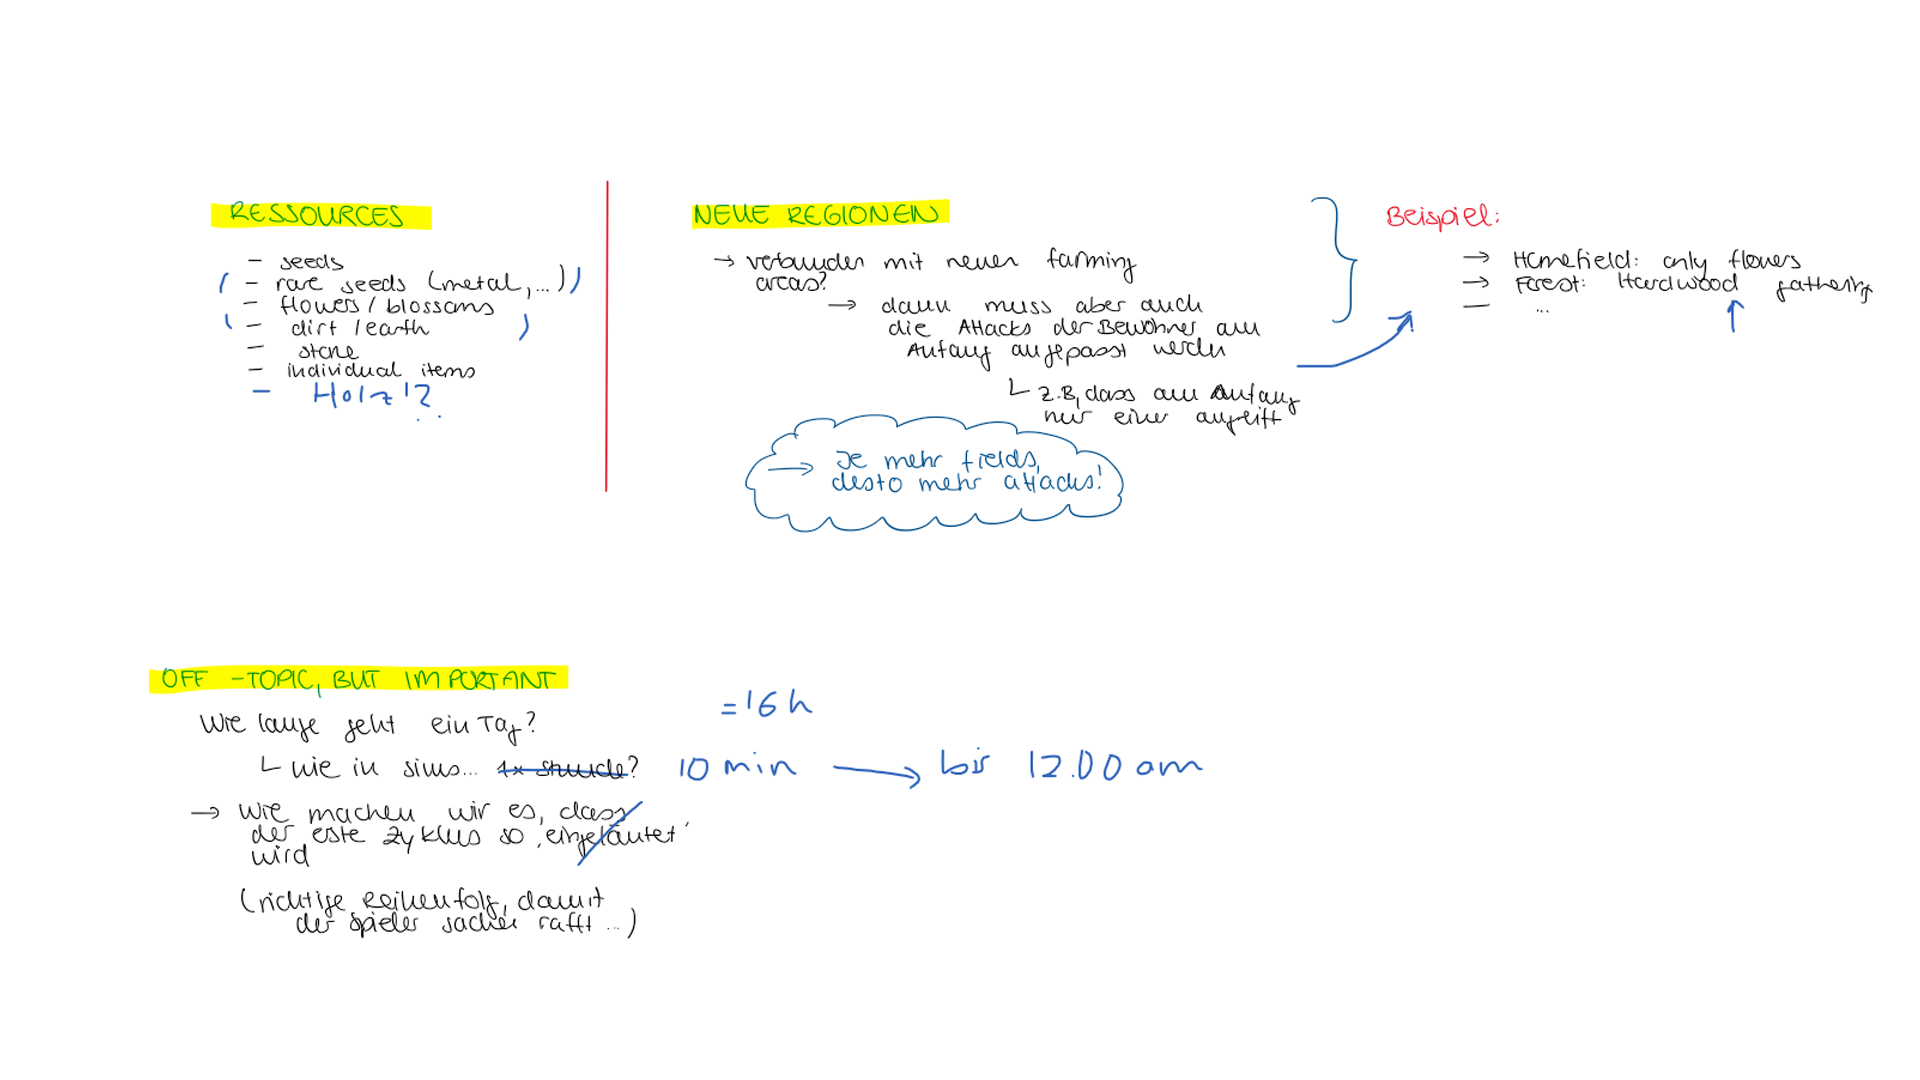 RESSOURCES
- seeds
( - rare seeds (metal, ...) )
- flowers / blossoms
( - dirt / earth )
- stone
- individual items
- Holz!?
NEUE REGIONEN
→ verbunden mit neuen farming
areas?
→ dann muss aber auch
die Attacks der Bewohner am
Anfang angepasst werden
└ z.B, dass am Anfang
nur einer angreift
→ Je mehr fields,
desto mehr attacks!
Beispiel:
→ Homefield: only flowers
→ Forest: Hardwood gathering
- ...
OFF-TOPIC, BUT IMPORTANT
Wie lange geht ein Tag?
= 16 h
└ wie in sims... 1x Stunde? 10 min → bis 12.00 am
→ Wie machen wir es, dass
der erste Zyklus so ‚eingeläutet'
wird
(richtige Reihenfolg, damit
der Spieler sachen rafft ...)